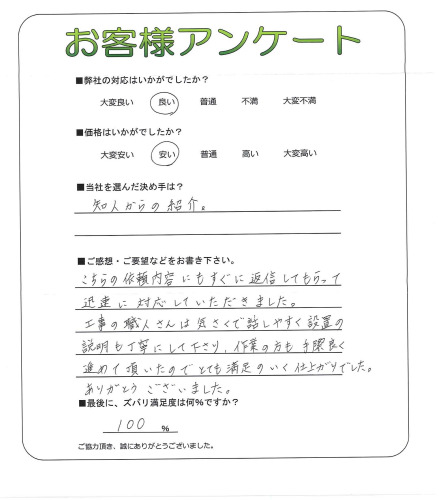 お客様アンケート
■弊社の対応はいかがでしたか？
大変良い 良い 普通 不満 大変不満
■価格はいかがでしたか？
大変安い 安い 普通 高い 大変高い
■当社を選んだ決め手は？
知人からの紹介。
■ご感想・ご要望などをお書き下さい。
こちらの依頼内容にもすぐに返信してもらって
迅速に対応していただきました。
工事の職人さんは気さくで話しやすく設置の
説明も丁寧にして下さり、作業の方も手際良く
進めて頂いたのでとても満足のいく仕上がりでした。
ありがとうございました。
■最後に、ズバリ満足度は何％ですか？
100 ％
ご協力頂き、誠にありがとうございました。